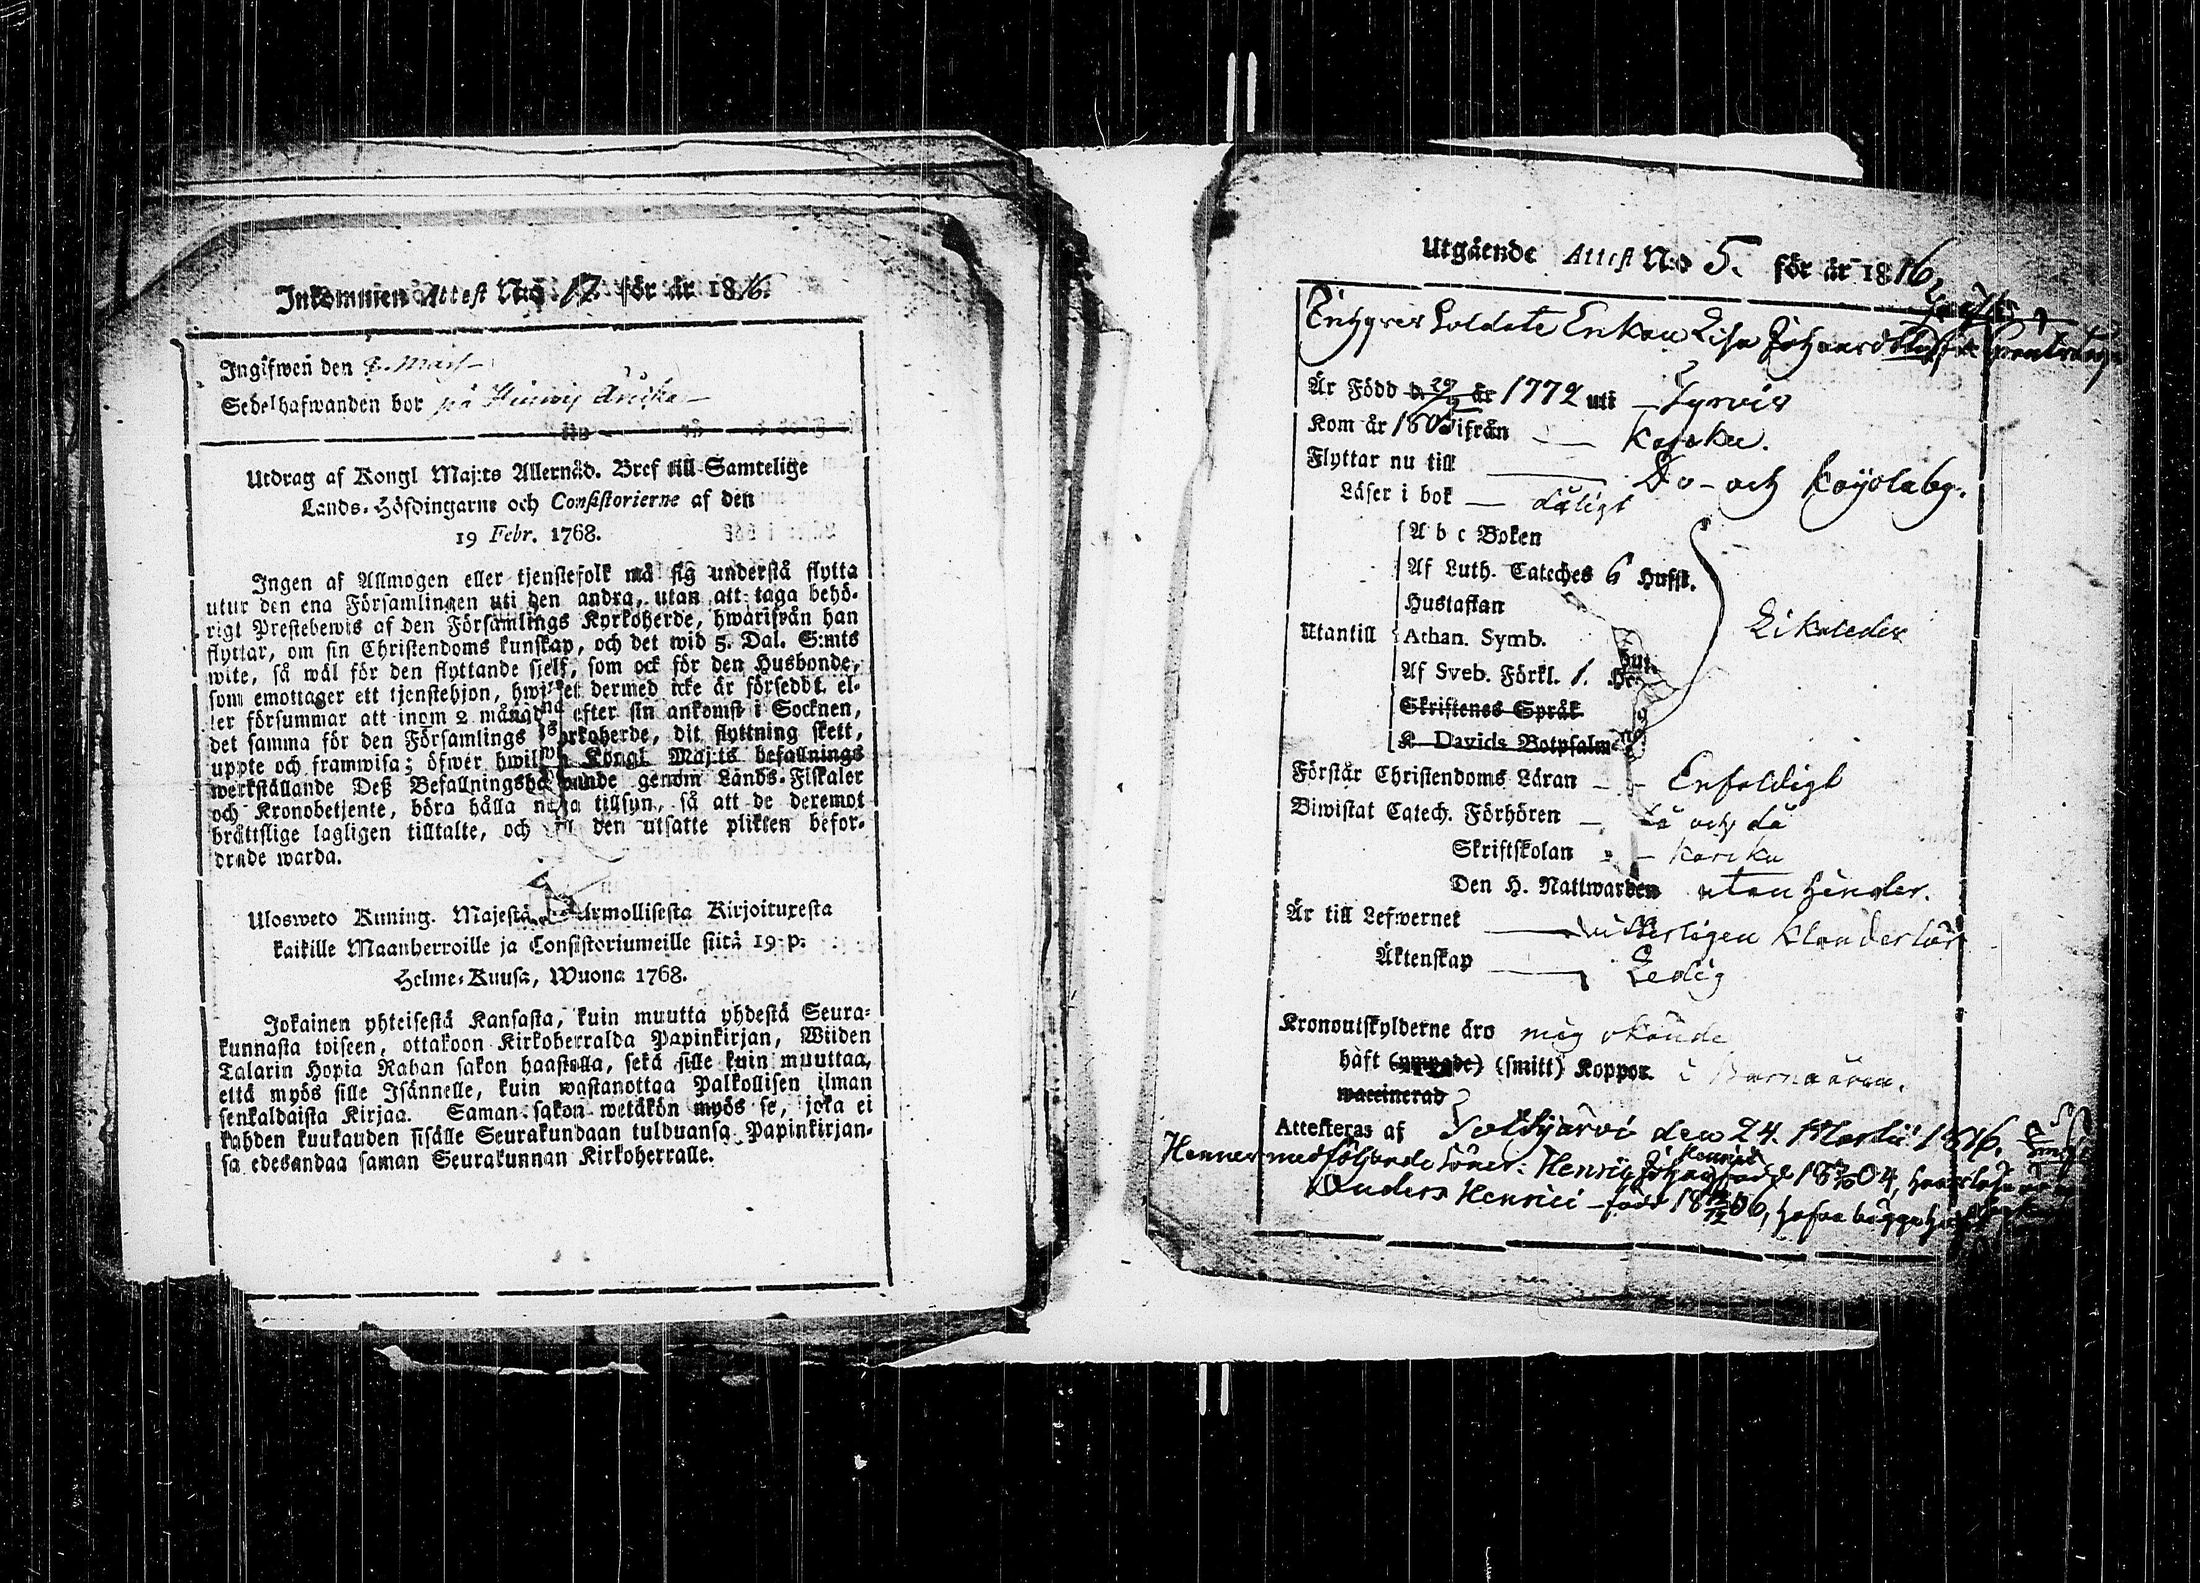 Inkommen Attest N:o 17 för år 1816.
Ingifwen den 8. Mart
Sedelhafwanden bor på
Utdrag af Kongl Maj:ts Allernåd. Bref till Samtelige
Lands-Höfdingarne och Consistorierne af den
19 Febr. 1768.
Ingen af Allmogen eller tjenstefolk må sig understå flytta
utur den ena Församlingen uti den andra, utan att taga behö-
rigt Prestebewis af den Församlings Kyrkoherde, hwarifrån han
flyttar, om sin Christendoms kunskap, och det wid 5. Dal. S:mts
wite, så wäl för den flyttande sjelf, som ock för den Husbonde,
som emottager ett tjenstehjon, hwilket dermed icke är försedbt, el-
ler försummar att inom 2 månader efter sin ankomst i Socknen,
det samma för den Församlings Kyrkoherde, dit flyttning skett,
uppte och framwisa; öfwer hwilken Kongl Maj:ts befallnings
werkställande Deß Befallningshafwande genom Lands-Fiskaler
och Kronobetjente, böra hålla noga tillsyn, så att de deremot
bråttslige lagligen tilltalte, och till den utsatte plikten befor-
drade warda.
Ulosweto Kuning. Majestä Armollisesta Kirjoituxesta
kaikille Maanherroille ja Consistoriumeille siitä 19 p.
Helme-Kuusa, Wuona 1768.
Jokainen yhteisestä Kansasta, kuin muutta yhdestä Seura-
kunnasta toiseen, ottakoon Kirkoherralda Papinkirjan, Wiiden
Talarin Hopia Rahan sakon haastolla, sekä sille kuin muuttaa,
että myös sille Isännelle, kuin wastanottaa Palkollisen ilman
senkaldaista Kirjaa. Saman sakon wetäkön myös se, joka ei
kahden kuukauden sisälle Seurakundaan tulduansa Papinkirjan-
sa edesandaa saman Seurakunnan Kirkoherralle.
Utgående Attest N:o 5. för år 1816
Soldate Enkan Lisa
Är Född d. 29/9 år 1772 uti Tyrvis
Kom år 1805 ifrån Karcku.
Flyttar nu till Do och
Läser i bok dåligt
A b c Boken
Af Luth. Cateches 6 Hufst.
Hustaflan
Utantill Athan. Symb. Likaledes
Af Sveb. Förkl. 1.
Skriftenes Språk
K. Davids Botpsalm
Förstår Christendoms Läran Enfaldigt
Biwistat Catech. Förhören då och då
Skriftskolan Karcku
Den H. Nattwarden utan hinder.
Är till Lefwernet witterligen klanderlös
Äktenskap Ledig
Kronoutskylderne äro mig okände
håft (ympade) (smitt) Koppor i Barnaåren.
waccinerad
Attesteras af den 24. Martii 1816.
Henne medfölja de söner: Henric Johan född 1804,
Anders Henrici född 1806, hafva bägge